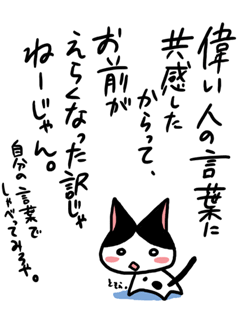 偉い人の言葉に
共感した
からって、
お前が
えらくなった訳じゃ
ねーじゃん。
自分の言葉で
しゃべってみろや。